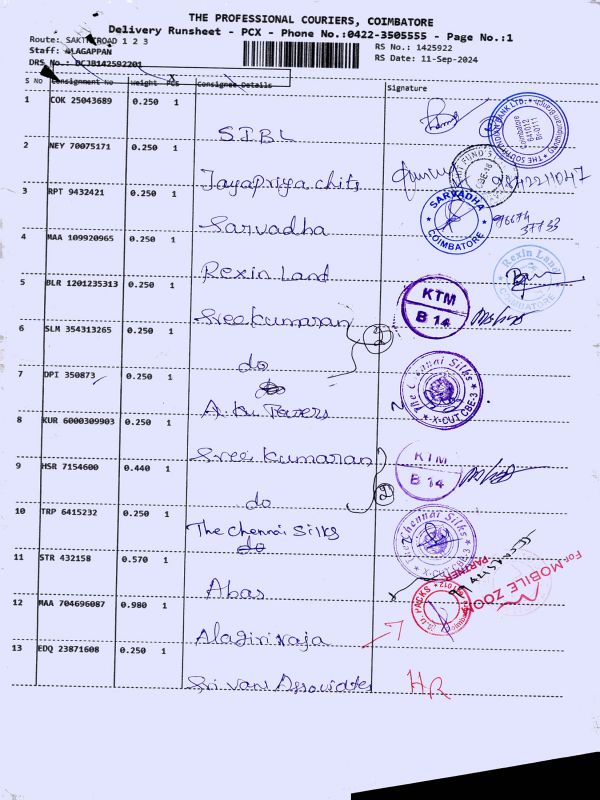 THE PROFESSIONAL COURIERS, COIMBATORE
Delivery Runsheet - PCX - Phone No.:0422-3505555 - Page No.:1
Route: SAKTHIROAD 1 2 3
RS No.: 1425922
Staff: ALAGAPPAN
RS Date: 11-Sep-2024
DRS No.: DCJB142592201
S No Consignment No Weight PCS Consignee Details Signature
1 COK 25043689 0.250 1
S.I.B.L
2 NEY 70075171 0.250 1
Jayapriya chits
3 RPT 9432421 0.250 1
Sarvadha
SARVADHA COIMBATORE
4 MAA 109920965 0.250 1
Rexin Land
Rexin Land COIMBATORE
5 BLR 1201235313 0.250 1
Sree kumaran
KTM
B 14
6 SLM 354313265 0.250 1
do
2
7 DPI 350873 0.250 1
A. Ku. Towers
The Chennai Silks X-OUT.CBE-3
8 KUR 6000309903 0.250 1
Sree kumaran
KTM
B 14
9 HSR 7154600 0.440 1
do
2
10 TRP 6415232 0.250 1
The Chennai Silks
The Chennai Silks X-OUT.CBE-3
11 STR 432158 0.570 1
Abas
For MOBILE ZOO
PARTNER
12 MAA 704696087 0.980 1
Alagiriraja
13 EDQ 23871608 0.250 1
Sri Vari Associates
HR